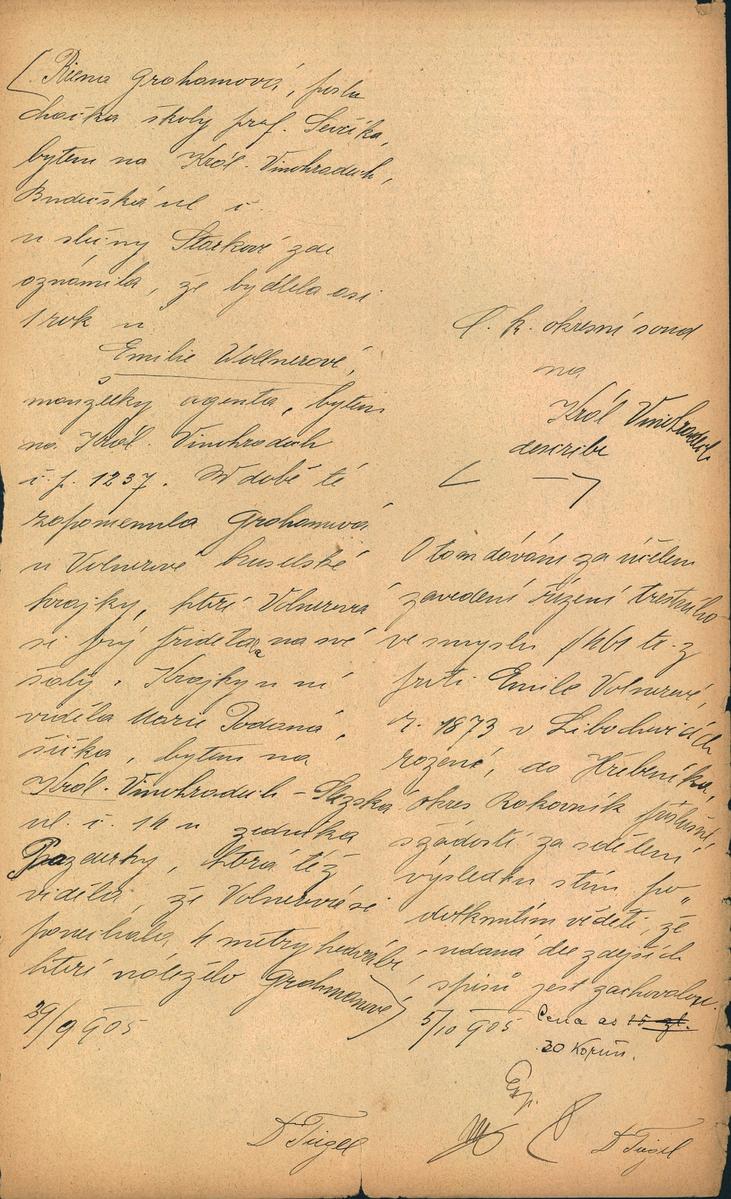 Růžena Grohamová, poslu
chačka školy prof. Ševčíka,
bytem na Král. Vinohradech,
Budečská ul č.
u slečny Starkové zde
oznámila, že bydlela asi
1 rok u
Emilie Vollnerové,
manželky agenta, bytem
na Král. Vinohradech
č. p. 1237. V době té
zapomenula Grohamová
u Volnerové bruselské
krajky, které Volnerová
si prý přidělala na své
šaty. Krajky u ní
viděla Marie Podaná,
šička, bytem na
Král. Vinohradech - Slezská
ul. č. 14 u zedníka
Pazderky, která též
viděla, že Volnerová si
ponechala 4 metry hedvábí
které náleželo Grohmanové
29/9 905
D Tügel
C. k. okresní soud
na
Král Vinohradech
describe
O tom dávám za účelem
zavedení řízení trestního
ve smyslu § 461 tr. z
proti Emilie Volnerové,
r. 1873 v Libochovicích
rozené, do Hřebečníka,
okres Rakovník příslušné
s žádostí za sdělení
výsledku s tím po„
dotknutím věděti, že
udaná dle zdejších
spisů jest zachovalou.
5/10 905
Cena as 15 zl.
30 Korun.
Exp.
D Tügel